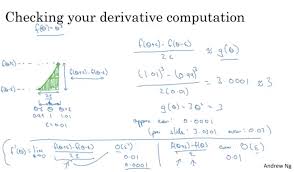 Checking your derivative computation
f(θ)=θ³
f(θ+ε)
f(θ-ε)
f(θ+ε)-f(θ-ε)
2ε
0.99 1 1.01
ε=0.01
f(θ+ε) - f(θ-ε) / 2ε ≈ g(θ)
(1.01)³ - (0.99)³ / 2(0.01) = 3.0001 ≈ 3
g(θ) = 3θ² = 3
approx error: 0.0001
(prev slide: 3.0301 error: 0.03)
f'(θ) = lim f(θ+ε)-f(θ-ε) / 2ε O(ε²)
0.01
0.0001
f(θ+ε)-f(θ) / ε error: O(ε)
0.01
Andrew Ng